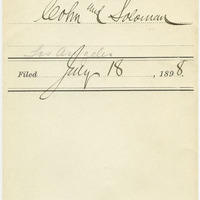 Cohn and Solomon
Los Angeles
Filed July 18, 1898.